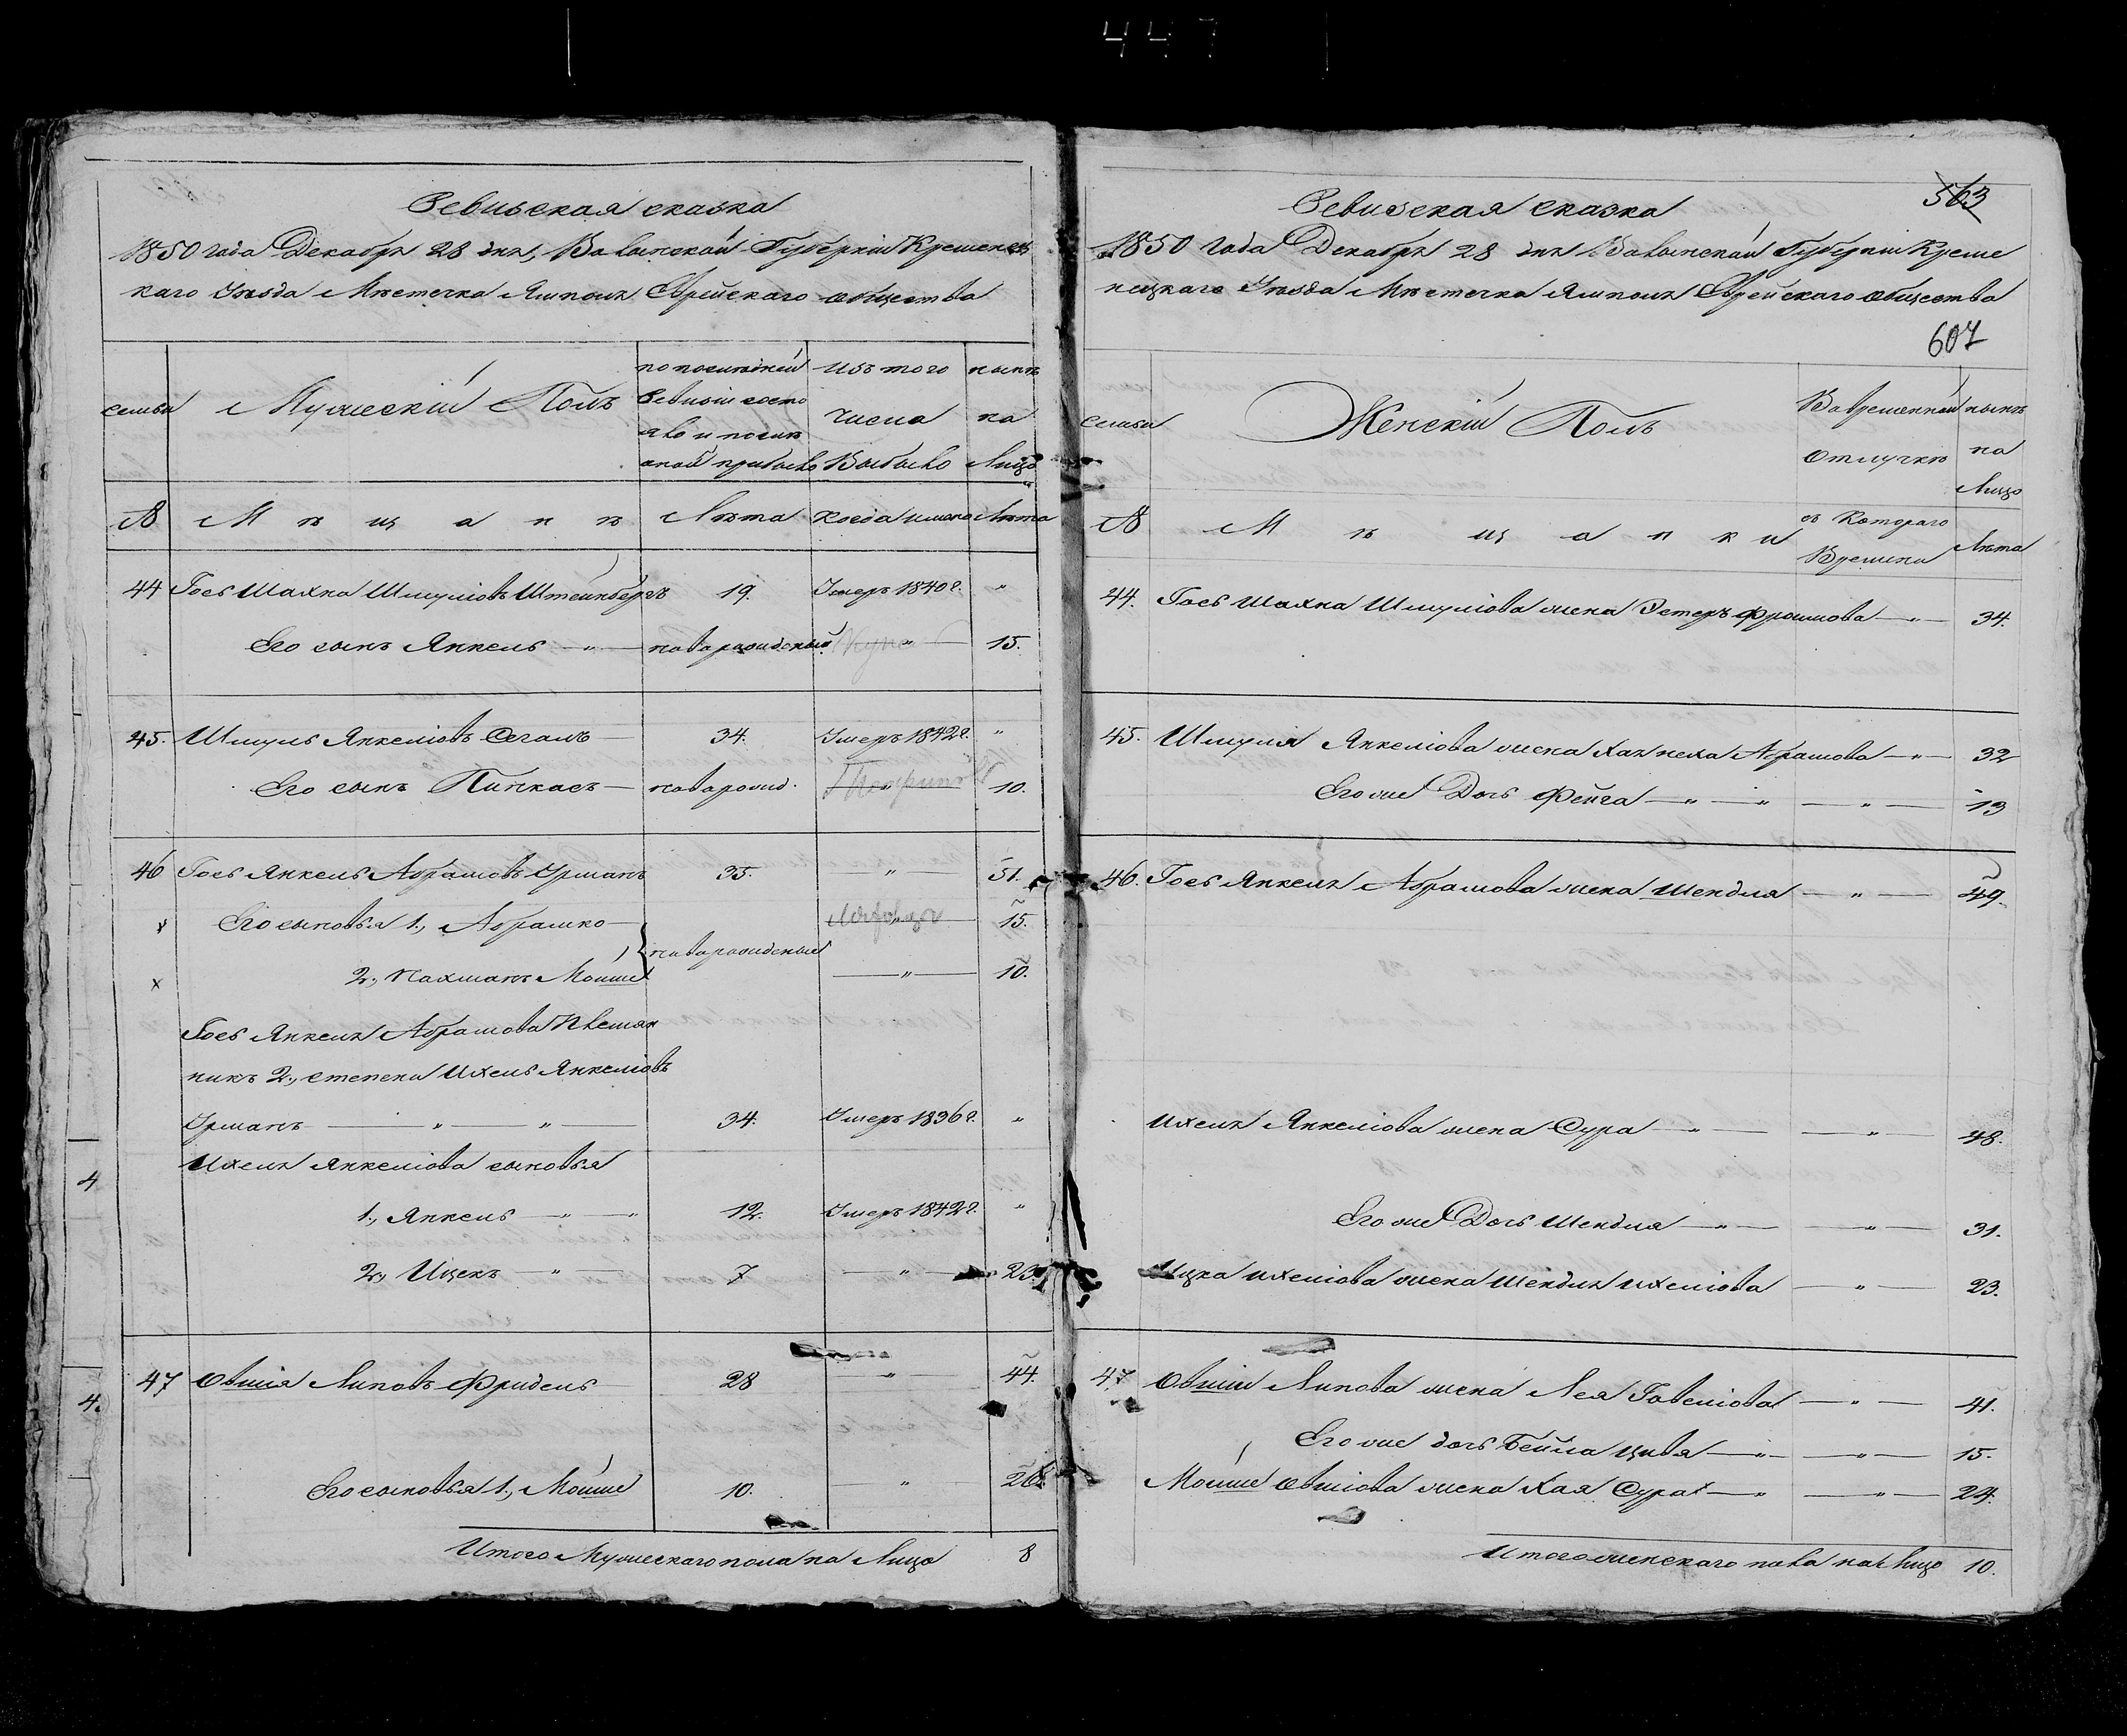 447
Ревизская сказка
1850 года Декабря 28 дня, Волынской Губерніи Кременец
каго Уѣзда Мѣстечка Ямполя Еврейскаго общества
семьи
Мужескій Полъ
по послѣдней
Ревизіи состо
яло и послѣ
оной прибыло
Изъ того
числа
Выбыло
нынѣ
на
Лицо
№
Мѣщане
Лѣта
Когда именно
Лѣта
44 Гось Шахна Шмуліовъ Штейнбергъ 19. Умеръ 1840 г. "
Его сынъ Янкель — " — новорожденый " 15.
45. Шмуль Янкеліовъ Сегалъ — 34. Умеръ 1842 г. "
Его сынъ Пинкасъ — новорожд. " 10.
46 Гось Янкель Абрамовъ Урманъ 35. " 51.
Его сыновья 1., Абрамко — новорожденые " 15.
2., Нахманъ Мойше — " — 10.
Гось Янкеля Абрамова Племян
никъ 2., степени Ихель Янкеліовъ
Урманъ — " — " — 34. Умеръ 1836 г. "
Ихеля Янкеліова сыновья
1., Янкель — " — " 12. Умеръ 1842 г. "
2., Ицекъ — " — 7 — " — 23.
47 Овшія Липовъ Фридель 28 " 44.
Его сыновья 1., Мойше 10. — " — 26.
Итого Мужескаго пола на Лицо 8
4
4.
563
Ревизская сказка
1850 года Декабря 28 дня Волынской Губерніи Креме
нецкаго Уѣзда Мѣстечка Ямполя Еврейскаго общества
607
Семьи
Женскій Полъ
Во временной
отлучкѣ
нынѣ
на
Лицо
№
Мѣщанки
съ Котораго
Времени
Лѣта
44. Гось Шахна Шмуліова жена Эстеръ Фроимова — " — 34.
45. Шмуля Янкеліова жена Хая неха Абрамова — " — 32
Его же Дочь Фейга — " — " — " — 13
46. Гось Янкеля Абрамова жена Шендля — " — 49.
Ихеля Янкеліова жена Сура — " — — " — 48.
Его же Дочь Шендля — " — — " — 31.
Ицка Ихеліова жена Шендля Ихеліова — " — 23.
47 Овшии Липова жена Лея Говеліова — " — 41.
Его же дочь Бейла Цивя — " — — " — 15.
Мойше Овшіова жена Хая Сура — " — " — 24.
Итого женскаго пола на Лицо 10.